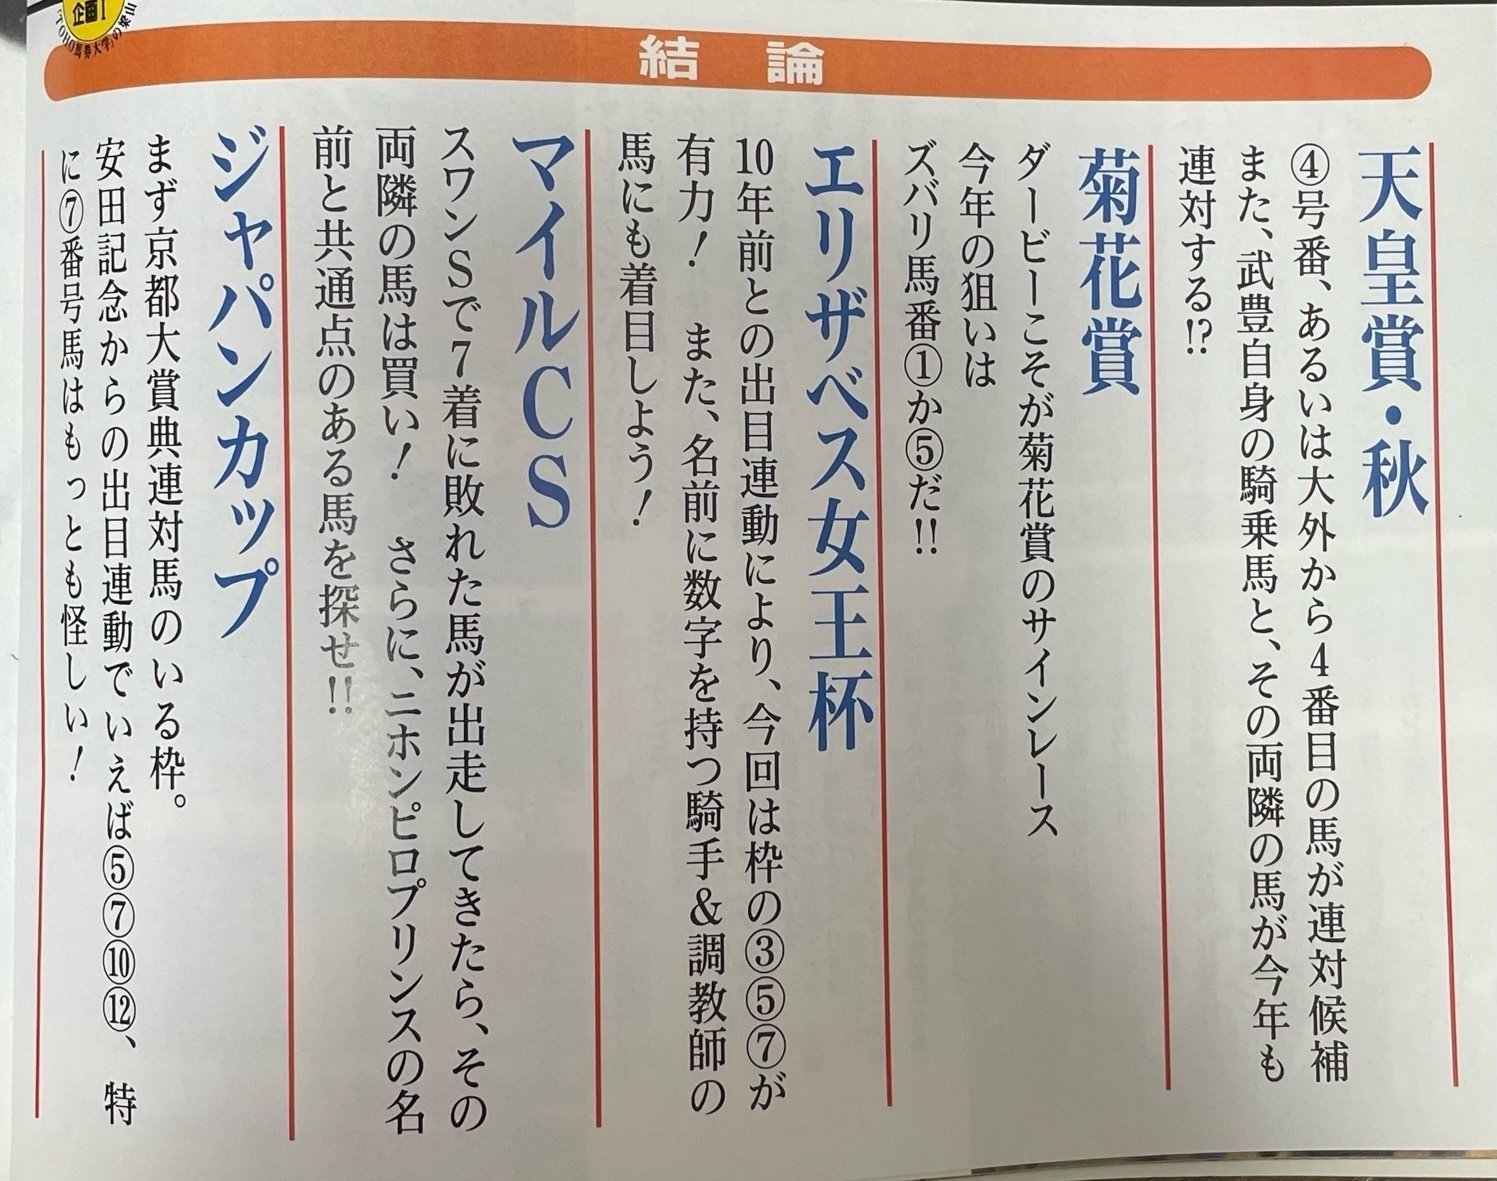 企画1
「TOHO馬券大学」の
結論
天皇賞・秋
④号番、あるいは大外から4番目の馬が連対候補
また、武豊自身の騎乗馬と、その両隣の馬が今年も
連対する!?
菊花賞
ダービーこそが菊花賞のサインレース
今年の狙いは
ズバリ馬番①か⑤だ!!
エリザベス女王杯
10年前との出目連動により、今回は枠の③⑤⑦が
有力！　また、名前に数字を持つ騎手＆調教師の
馬にも着目しよう！
マイルCS
スワンSで7着に敗れた馬が出走してきたら、その
両隣の馬は買い！　さらに、ニホンピロプリンスの名
前と共通点のある馬を探せ!!
ジャパンカップ
まず京都大賞典連対馬のいる枠。
安田記念からの出目連動でいえば⑤⑦⑩⑫、特
に⑦番号馬はもっとも怪しい！